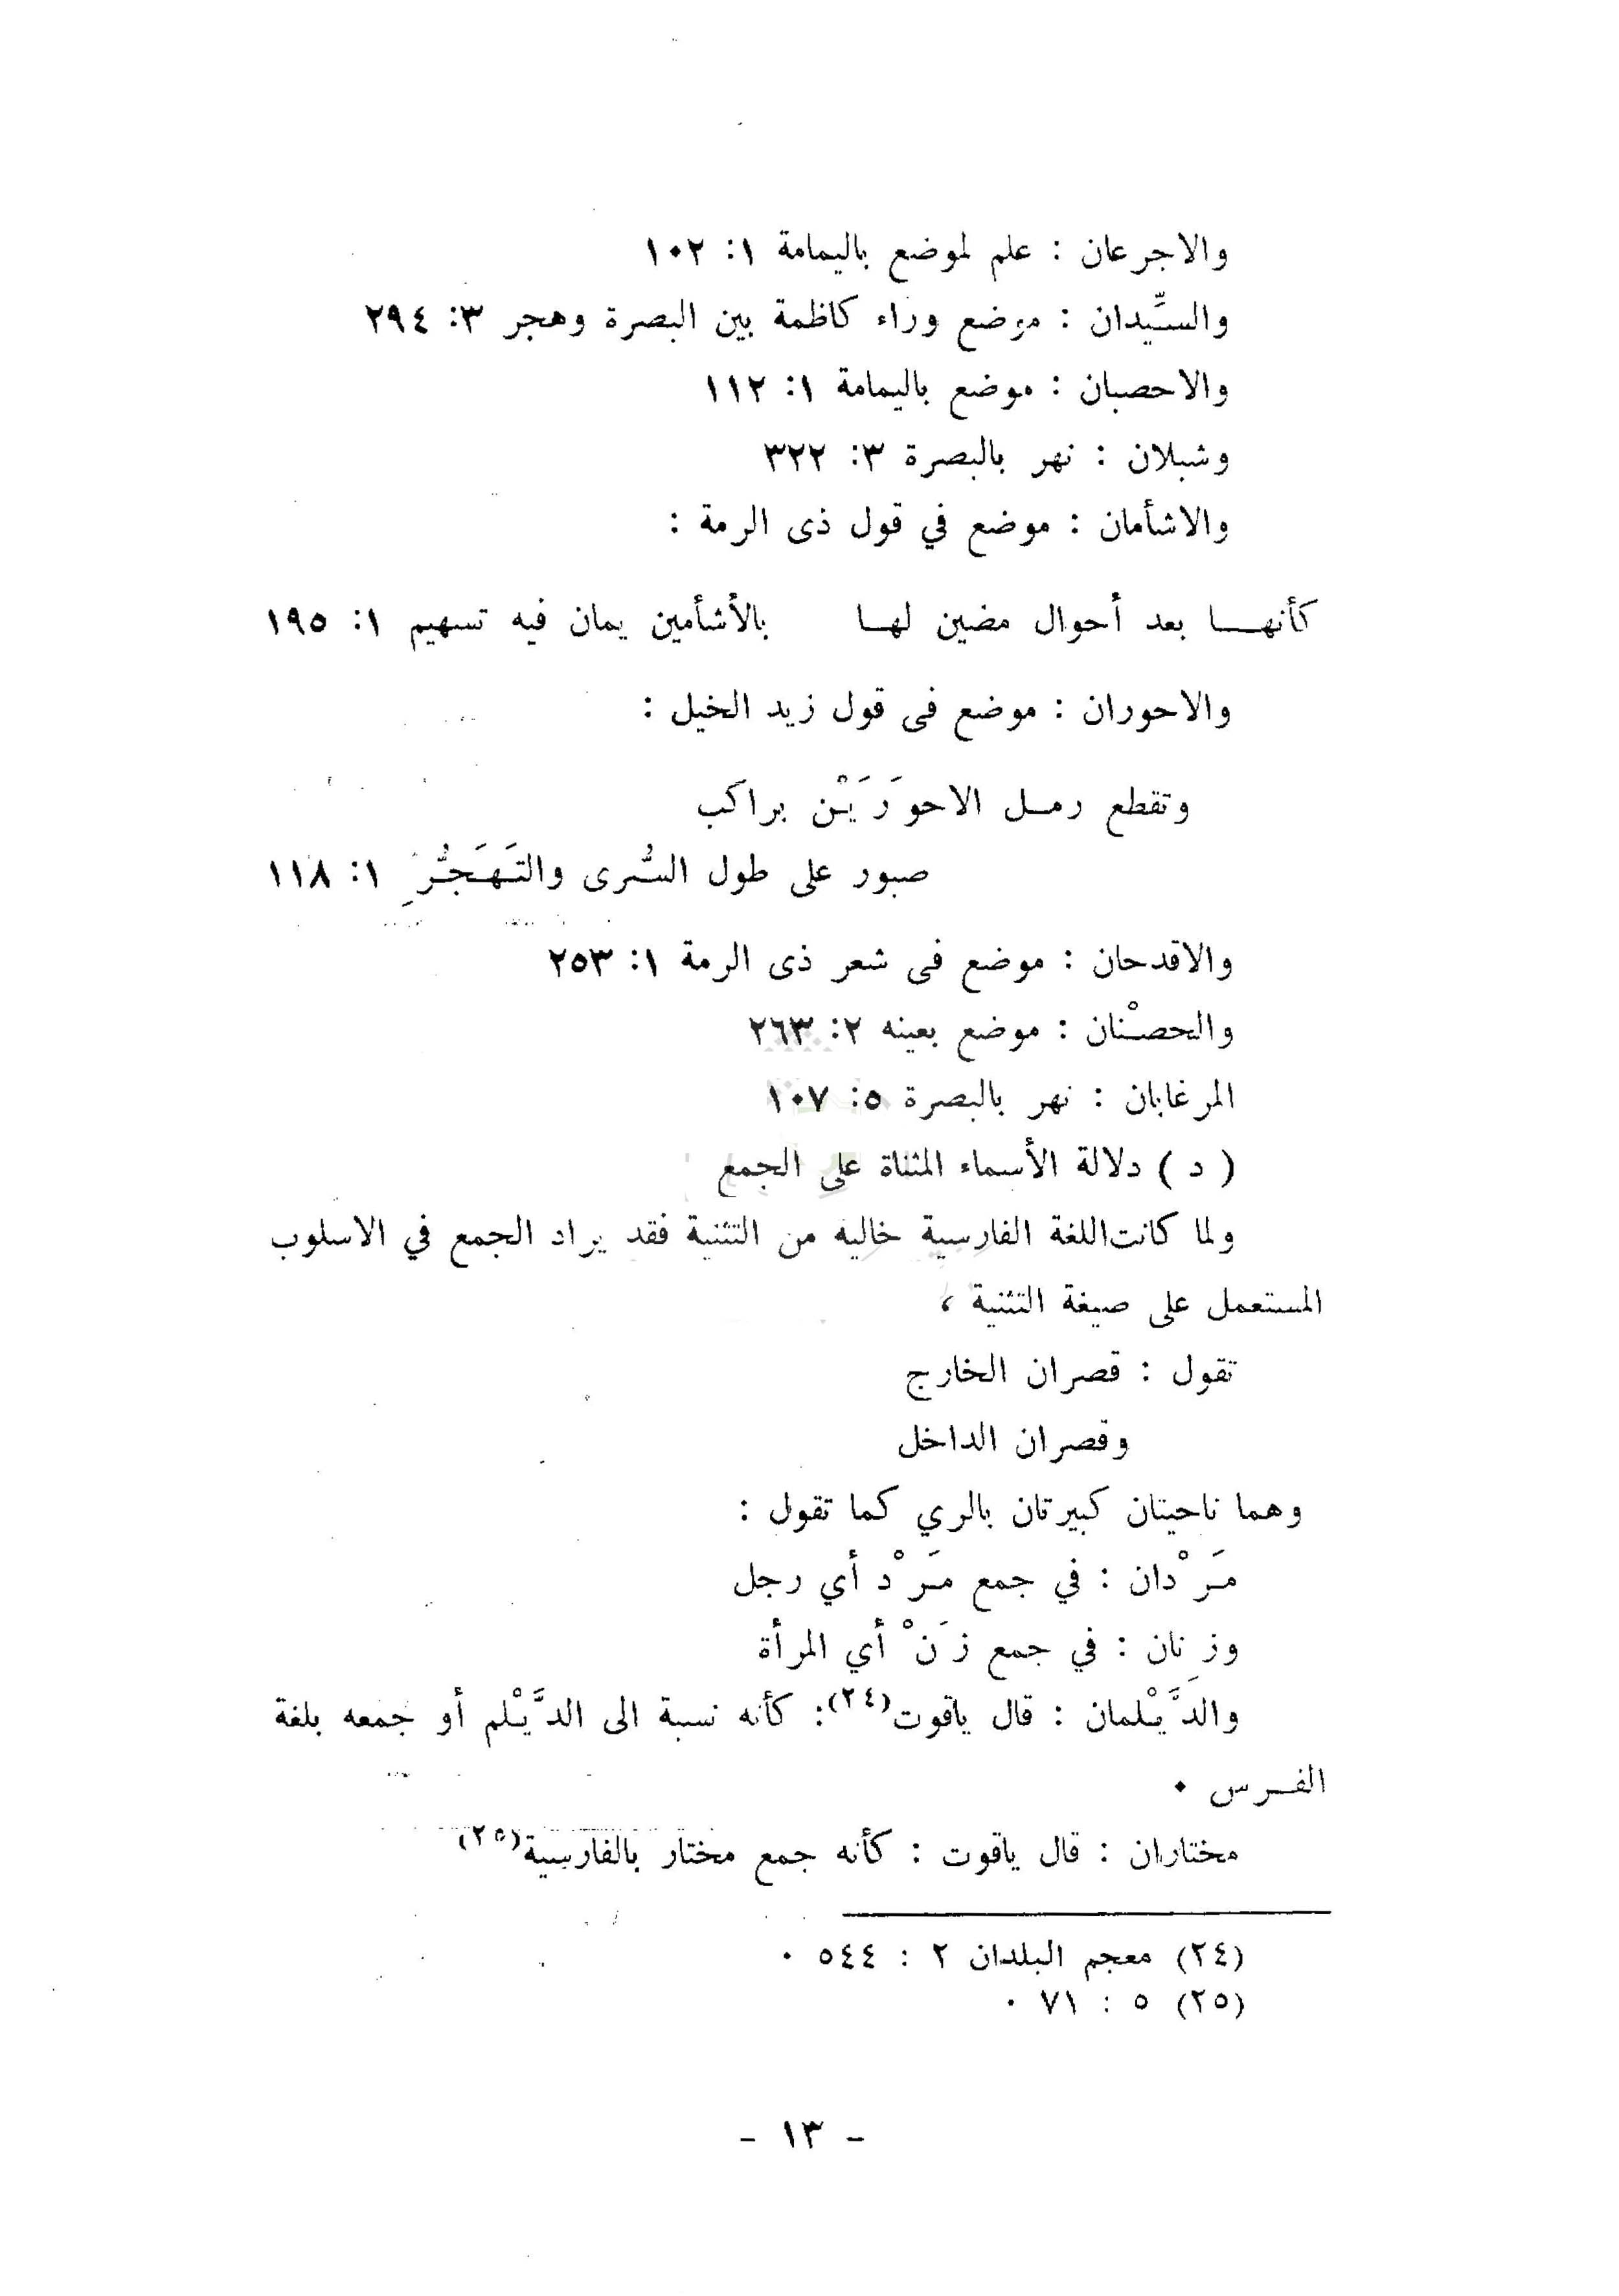 والاجرعان : علم لموضع باليمامة ١: ١٠٢
والسِّيدان : موضع وراء كاظمة بين البصرة وهجر ٣: ٢٩٤
والاحصبان : موضع باليمامة ١: ١١٢
وشبلان : نهر بالبصرة ٣: ٣٢٢
والاشأمان : موضع في قول ذى الرمة :
كأنهـــا بعد أحوال مضين لهـا بالأشأمين يمان فيه تسهيم ١: ١٩٥
والاحوران : موضع فى قول زيد الخيل :
وتقطع رمـل الاحوَرَيْن براكب
صبور على طول السُّرى والتَهَجُّرِ ١: ١١٨
والاقدحان : موضع فى شعر ذى الرمة ١: ٢٥٣
والحصْنان : موضع بعينه ٢: ٢٦٣
المرغابان : نهر بالبصرة ٥: ١٠٧
( د ) دلالة الأسماء المثناة على الجمع
ولما كانت اللغة الفارسية خاليه من التثنية فقد يراد الجمع في الاسلوب
المستعمل على صيغة التثنية ،
تقول : قصران الخارج
وقصران الداخل
وهما ناحيتان كبيرتان بالري كما تقول :
مَرْدان : في جمع مَرْد أي رجل
وزنان : في جمع زَنْ أي المرأة
والدَّيْلمان : قال ياقوت(٢٤): كأنه نسبة الى الدَّيْلم أو جمعه بلغة
الفـرس ٠
مختاران : قال ياقوت : كأنه جمع مختار بالفارسية(٢٥)
(٢٤) معجم البلدان ٢ : ٥٤٤ ٠
(٢٥) ٥ : ٧١ ٠
- ١٣ -